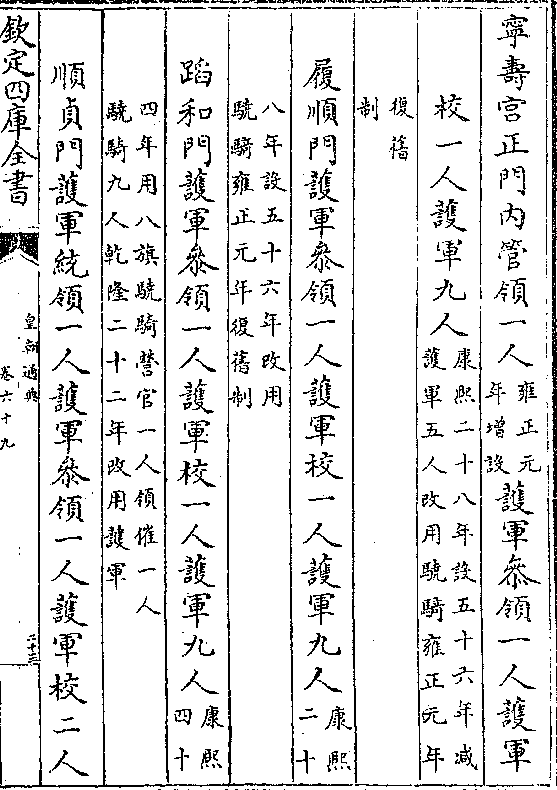 寧壽宫正門内管領一人雍正元年增設護軍叅領一人護軍
校一人護軍九人康熙二十八年設五十六年减護軍五人改用驍騎雍正元年
復舊制
履順門護軍叅領一人護軍校一人護軍九人康熙二十
八年設五十六年改用驍騎雍正元年復舊制
蹈和門護軍叅領一人護軍校一人護軍九人康熙四十
四年用八旗驍騎營官一人領催一人驍騎九人乾隆二十二年改用護軍
順貞門護軍統領一人護軍叅領一人護軍校二人
欽定四庫全書
皇朝通典
卷六十九
二十三